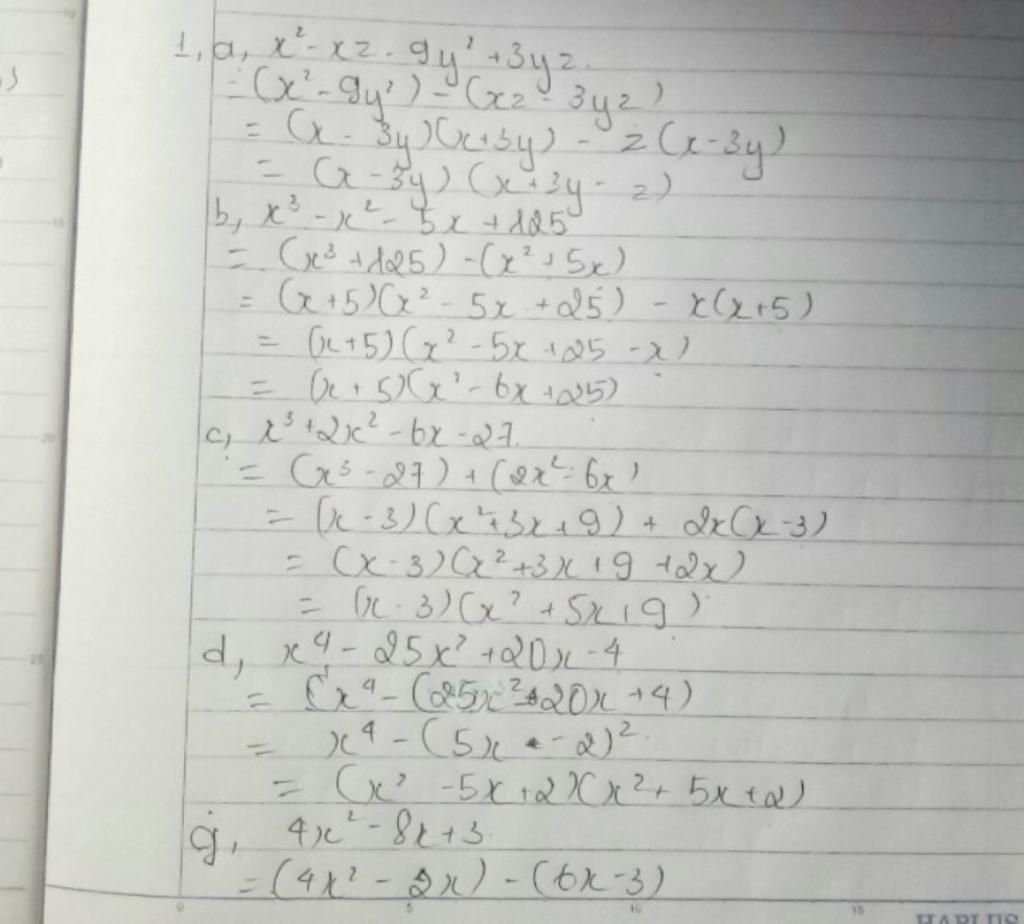 1, a, x² - xz - 9y² + 3yz.
= (x² - 9y²) - (xz - 3yz)
= (x - 3y)(x+3y) - z(x-3y)
= (x - 3y) (x+3y - z)
b, x³ - x² - 5x + 125
= (x³ + 125) - (x² + 5x)
= (x+5)(x² - 5x + 25) - x(x+5)
= (x+5)(x² - 5x + 25 - x)
= (x + 5)(x² - 6x + 25)
c, x³ + 2x² - 6x - 27.
= (x³ - 27) + (2x² - 6x)
= (x - 3)(x² + 3x + 9) + 2x(x - 3)
= (x - 3)(x² + 3x + 9 + 2x)
= (x - 3)(x² + 5x + 9)
d, x⁴ - 25x² + 20x - 4
= x⁴ - (25x² - 20x + 4)
= x⁴ - (5x - 2)².
= (x² - 5x + 2)(x² + 5x + 2)
g, 4x² - 8x + 3
= (4x² - 2x) - (6x - 3)
0 5 10 15
HAPLUS